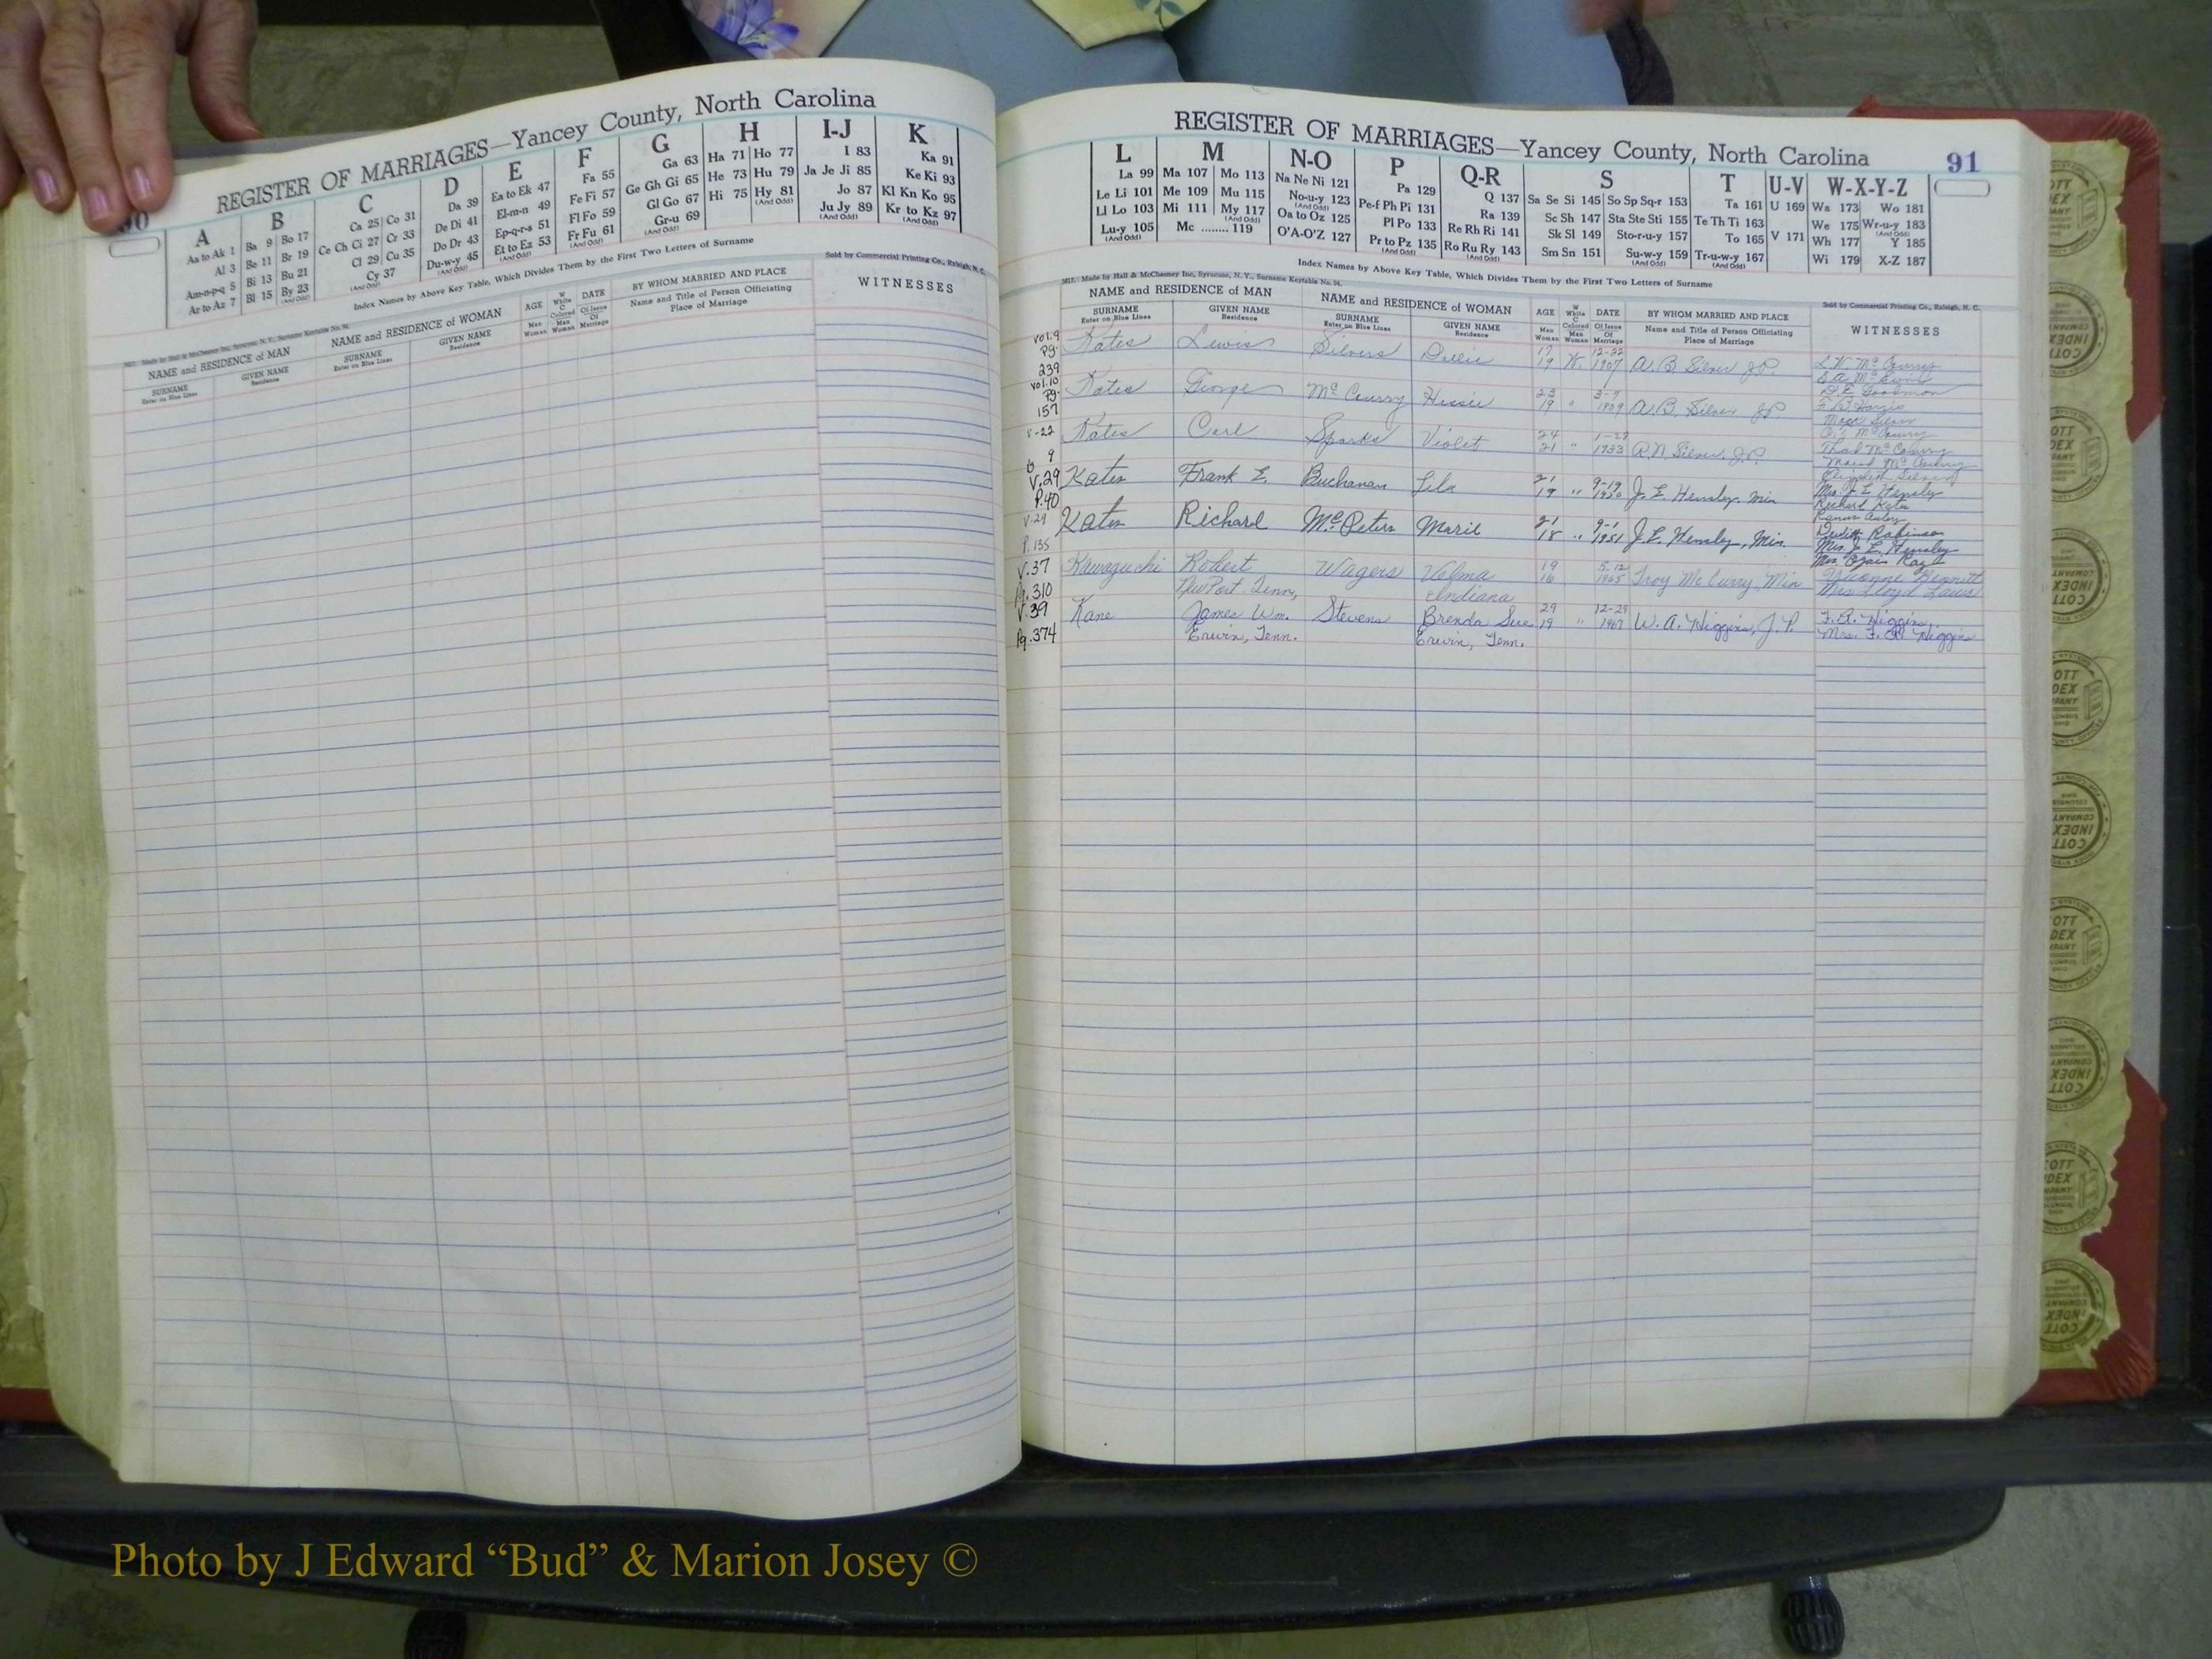 REGISTER OF MARRIAGES—Yancey County, North Carolina
A
Aa to Ak 1
Al 3
Am-n-p-q 5
Ar to Az 7
B
Ba 9 Bo 17
Be 11 Br 19
Bi 13 Bu 21
Bl 15 By 23
(And Odd)
C
Ca 25 Co 31
Ce Ch Ci 27 Cr 33
Cl 29 Cu 35
Cy 37
(And Odd)
D
Da 39
De Di 41
Do Dr 43
Du-w-y 45
(And Odd)
E
Ea to Ek 47
El-m-n 49
Ep-q-r-s 51
Et to Ez 53
(And Odd)
F
Fa 55
Fe Fi 57
Fl Fo 59
Fr Fu 61
(And Odd)
G
Ga 63
Ge Gh Gi 65
Gl Go 67
Gr-u 69
(And Odd)
H
Ha 71 Ho 77
He 73 Hu 79
Hi 75 Hy 81
(And Odd)
I-J
I 83
Ja Je Ji 85
Jo 87
Ju Jy 89
(And Odd)
K
Ka 91
Ke Ki 93
Kl Kn Ko 95
Kr to Kz 97
(And Odd)
Index Names by Above Key Table, Which Divides Them by the First Two Letters of Surname
Sold by Commercial Printing Co., Raleigh, N. C.
NAME and RESIDENCE of MAN
SURNAME
Enter on Blue Lines
GIVEN NAME
Residence
NAME and RESIDENCE of WOMAN
SURNAME
Enter on Blue Lines
GIVEN NAME
Residence
AGE
Man
Woman
W
White
C
Colored
Man
Woman
DATE
Of Issue
Of
Marriage
BY WHOM MARRIED AND PLACE
Name and Title of Person Officiating
Place of Marriage
WITNESSES
REGISTER OF MARRIAGES—Yancey County, North Carolina
91
L
La 99
Le Li 101
Ll Lo 103
Lu-y 105
(And Odd)
M
Ma 107 Mo 113
Me 109 Mu 115
Mi 111 My 117
(And Odd)
Mc ........ 119
N-O
Na Ne Ni 121
No-u-y 123
(And Odd)
Oa to Oz 125
O'A-O'Z 127
P
Pa 129
Pe-f Ph Pi 131
Pl Po 133
Pr to Pz 135
(And Odd)
Q-R
Q 137
Ra 139
Re Rh Ri 141
Ro Ru Ry 143
S
Sa Se Si 145 So Sp Sq-r 153
Sc Sh 147 Sta Ste Sti 155
Sk Sl 149 Sto-r-u-y 157
Sm Sn 151 Su-w-y 159
(And Odd)
T
Ta 161
Te Th Ti 163
To 165
Tr-u-w-y 167
(And Odd)
U-V
U 169
V 171
W-X-Y-Z
Wa 173 Wo 181
We 175 Wr-u-y 183
(And Odd)
Wh 177 Y 185
Wi 179 X-Z 187
Index Names by Above Key Table, Which Divides Them by the First Two Letters of Surname
M17. Made by Hall & McChesney Inc, Syracuse, N. Y., Surname Keytable No. 94.
Sold by Commercial Printing Co., Raleigh, N. C.
NAME and RESIDENCE of MAN
SURNAME
Enter on Blue Lines
GIVEN NAME
Residence
NAME and RESIDENCE of WOMAN
SURNAME
Enter on Blue Lines
GIVEN NAME
Residence
AGE
Man
Woman
W
White
C
Colored
Man
Woman
DATE
Of Issue
Of
Marriage
BY WHOM MARRIED AND PLACE
Name and Title of Person Officiating
Place of Marriage
WITNESSES
Vol. 9 Pg. 239 Kates Lewis Silvers Dollie 17 19 W. 12-22 1907 A. B. Silver JP
Vol. 10 Pg. 157 Kates George McCurry Hessie 23 19 " 3-7 1909 A. B. Silver JP
Kates Carl Sparks Violet 24 21 " 1933 R. N. Silver, J.P.
V. 29 P. 40 Kates Frank E. Buchanan Lila 21 19 " 9-19 1950 J. E. Hensley, Min Mrs. J. E. Hensley
V. 29 P. 135 Kates Richard McPeters Marie 21 18 " 9-1 1951 J. E. Hensley, Min. Mrs. J. E. Hensley
V. 37 Pg. 310 Kawaguchi Robert Wagers Velma 19 16 5-12 1965 Troy McCurry, Min
NewPort Tenn, Indiana
V. 39 Pg. 374 Kane James Wm. Stevens Brenda Sue 29 19 " 12-29 1967 W. A. Higgins, J. P. F. R. Higgins
Erwin, Tenn. Erwin, Tenn. Mrs. F. R. Higgins
Photo by J Edward “Bud” & Marion Josey ©